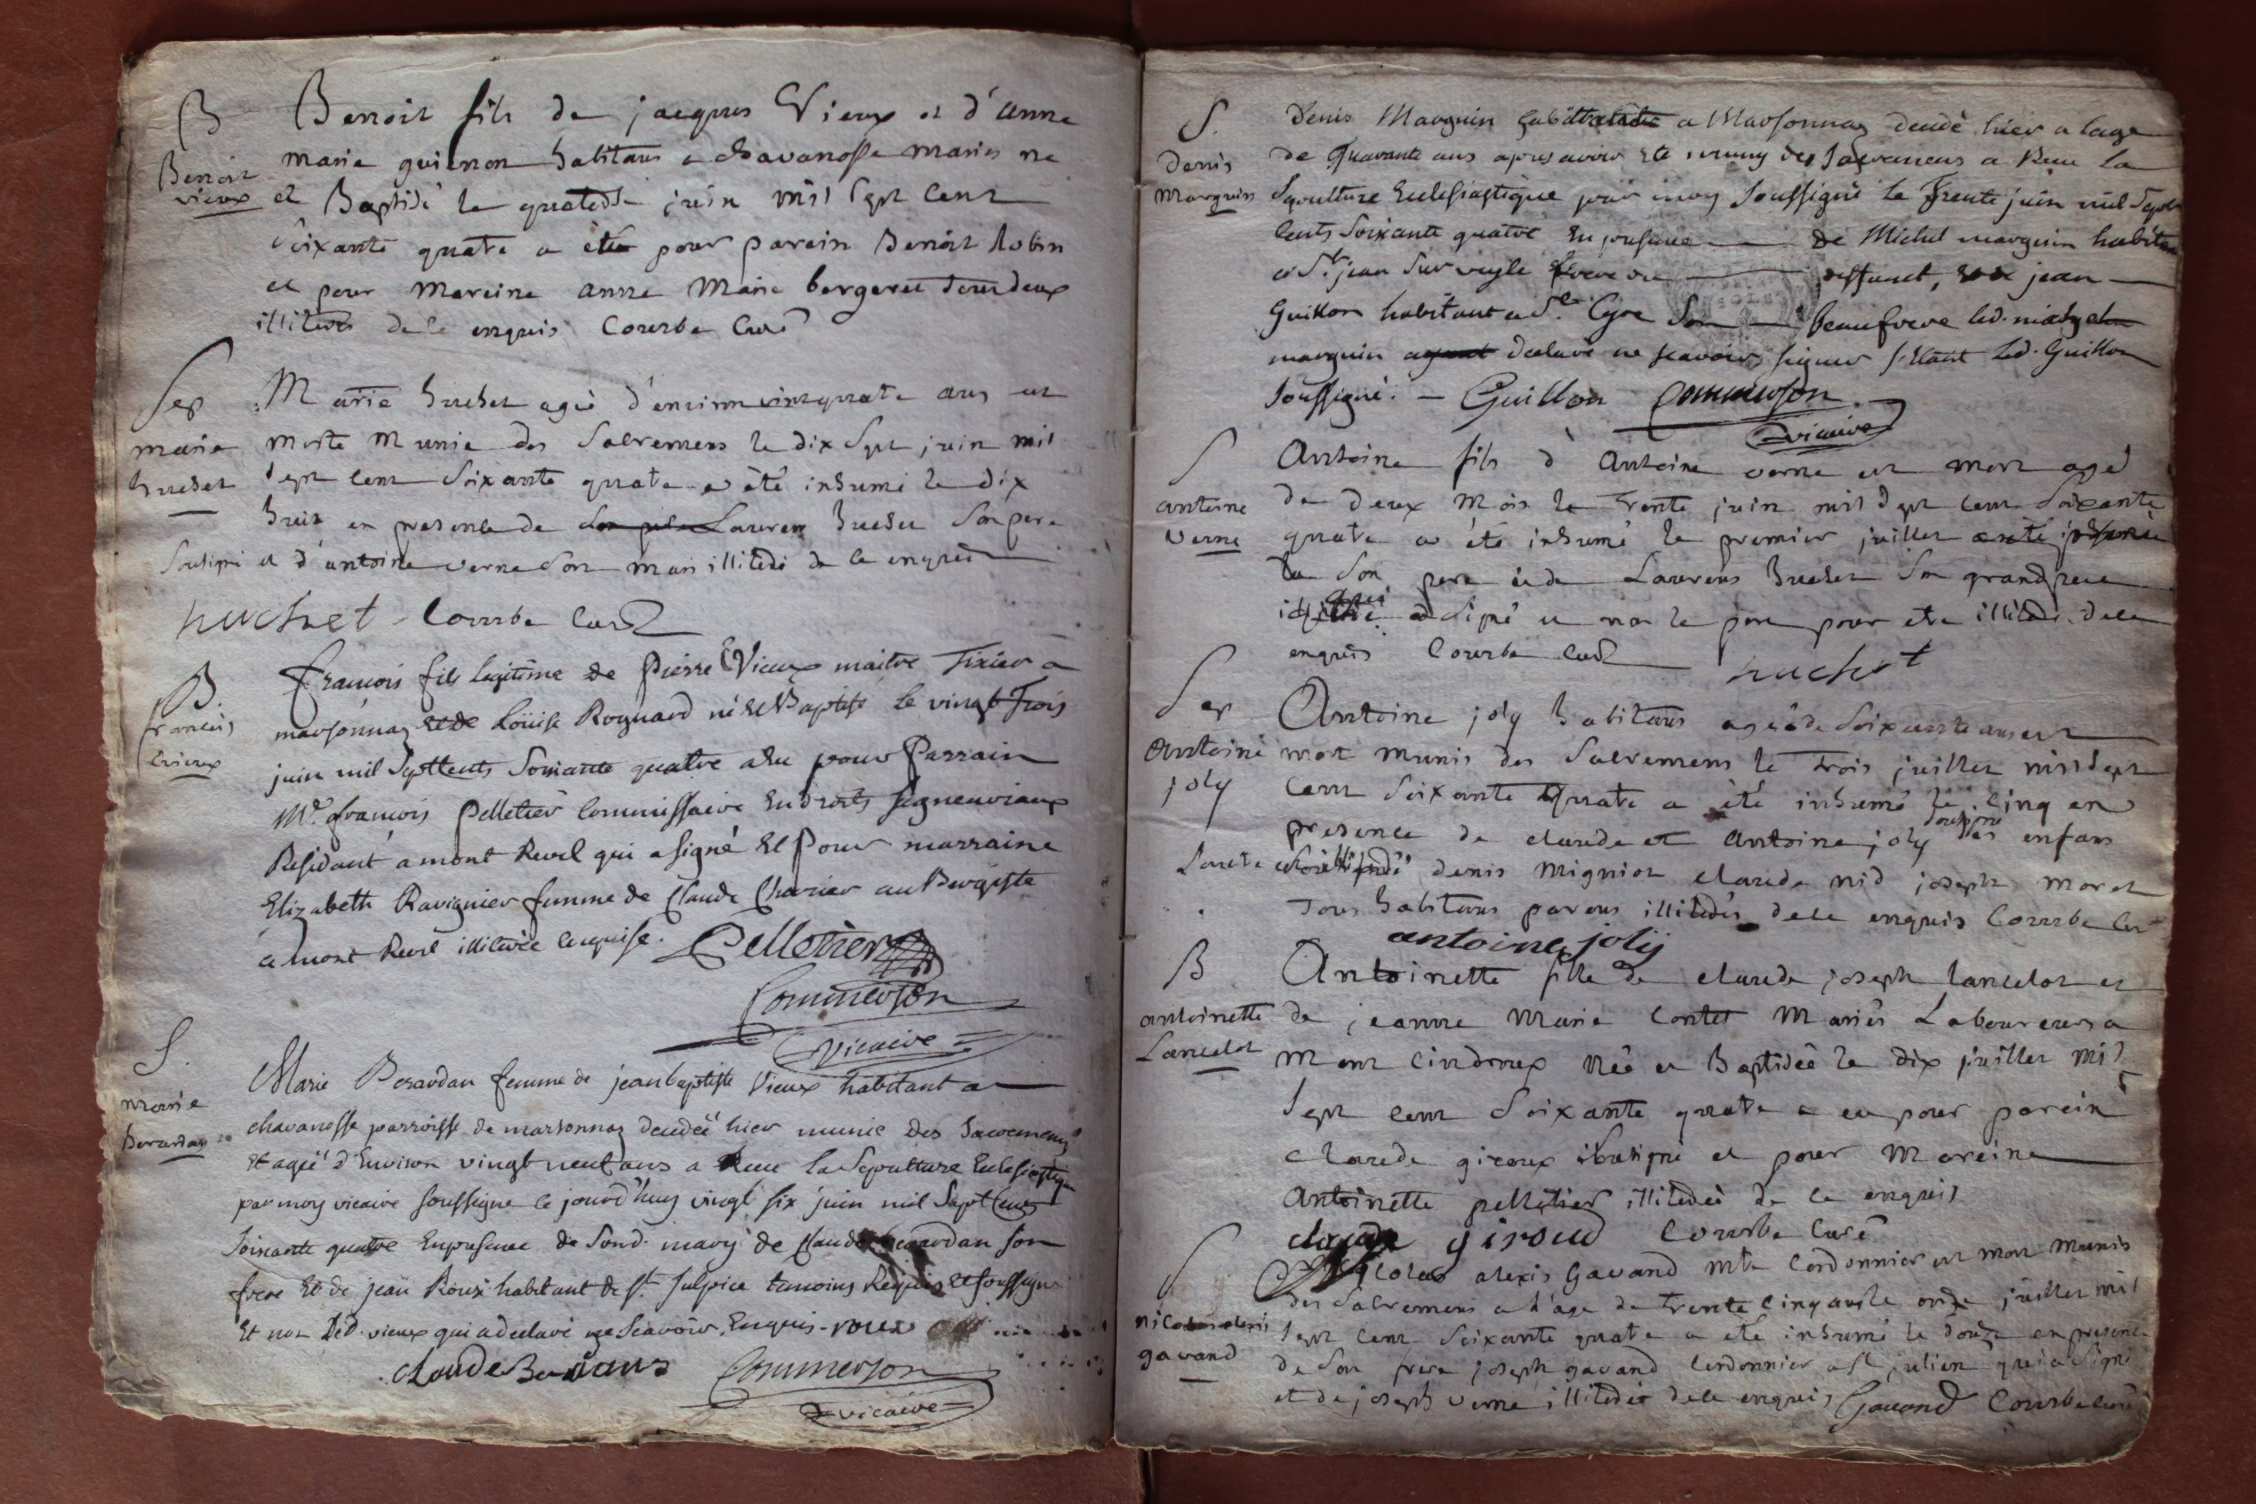 B
Benoit
vieux
Benoit fils de jacques Vieux et d'anne
marie guienon habitans a chavanosse mariés ne
et Baptisé le quatorse juin mil sept cent
soixante quatre a été pour parein Benoit Robin
et pour mareine anne Marie bergeret tous deux
illiterés de ce enquis Courbe Curé
Sep
marie
huchet
Marie huchet agée d'environ vintquatre ans est
morte Munie des Sacremens le dix sept juin mil
sept cent soixante quatre a été inhumé le dix
huit en presence de Laurent huchet son pere
sousigné et d'antoine verne son mari illiteré de ce enquis
huchet Courbe Curé
B.
francois
Vieux
francois fils legitime de pierre Vieux maitre Tixier a
marsonnaz et de Loüise Roynard né et Baptisé le vingt Trois
juin mil Septcents Soixante quatre a eu pour Parrain
Mr. francois Pelletier Commissaire En Droits Segneuriaux
Residant a mont Revel qui a signé Et Pour marraine
Elizabeth Ravignier femme de Claude Charier auBergiste
a mont Revel illiterée enquise. Pelletier
Commerson
Vicaire
S.
marie
berardan
Marie Berardan femme de jean baptiste Vieux habitant a
chavanosse parroisse de marsonnaz decedeé hier munie des Sacremens
Et ageé d'Environ vingt neuf ans a Reçu la Sepulture Eclesiastique
par moy vicaire soussigne ce jourd'huy vingt six juin mil Sept Cents
Soixante quatre En presence de Sond. mary de Claude Berardan son
frere Et de jean Roux habitant de St. sulpice temoins Requis Et soussignés
Et non Led. vieux qui a declaré ne Scavoir. Enquis - roux
claude Berardans Commerson
vicaire
S.
Denis
Marguin
Denis Marguin a Marsonnaz decedé hier a lage
de Quarante ans apres avoir eté muny des Sacremens a Reçu la
Sepulture Eclesiastique par moy Soussigné le Trente juin mil Sept
Cents Soixante quatre En presence de Michel marguin habitant
a St. jean Sur veyle frere du deffunct, jean
Guillon habitant a St. Cyre Son beaufrere led.
marguin declaré ne scavoir signer Led. Guillon
soussigné. - Guillon Commerson
vicaire
S
antoine
verne
Antoine fils d'Antoine verne est mort agé
de deux Mois le trente juin mil sept cent soixante
quatre a été inhumé le premier juillet
de son pere et de Laurens huchet son grand pere
qui a signé et non le pere pour etre illiteré de ce
enquis Courbe Curé huchet
Sep
Antoine
joly
Antoine joly habitans agé de soixante ans est
mort Munis des Sacremens le trois juillet mil sept
cent Soixante quatre a été inhumé le cinq en
presence de claude et Antoine joly ses enfans
denis Mignot claude nid joseph moret
Tous habitans parens illiterés de ce enquis Courbe Curé
antoine joly
B
antoinette
Lancelot
Antoinette fille de claude joseph lancelot et
de jeanne Marie Contet Mariés Laboureurs a
Mont Cindroux Née et Baptisée le dix juillet mil
sept cent Soixante quatre a eu pour parein
claude giroux sousigné et pour Mareine
Antoinette pelletier illiterée de ce enquis
claude giroud Courbe Curé
S
nicolas alexis
gavand
Nicolas alexis Gavand Mtre Cordonnier est mort Munis
des Sacremens a l'age de trente cinq ans le onze juillet mil
sept cent soixante quatre a été inhumé le douze en presence
de son frere joseph gavand Cordonnier a st julien qui a signé
et de joseph verne illiteré de ce enquis Gavand Courbe Curé